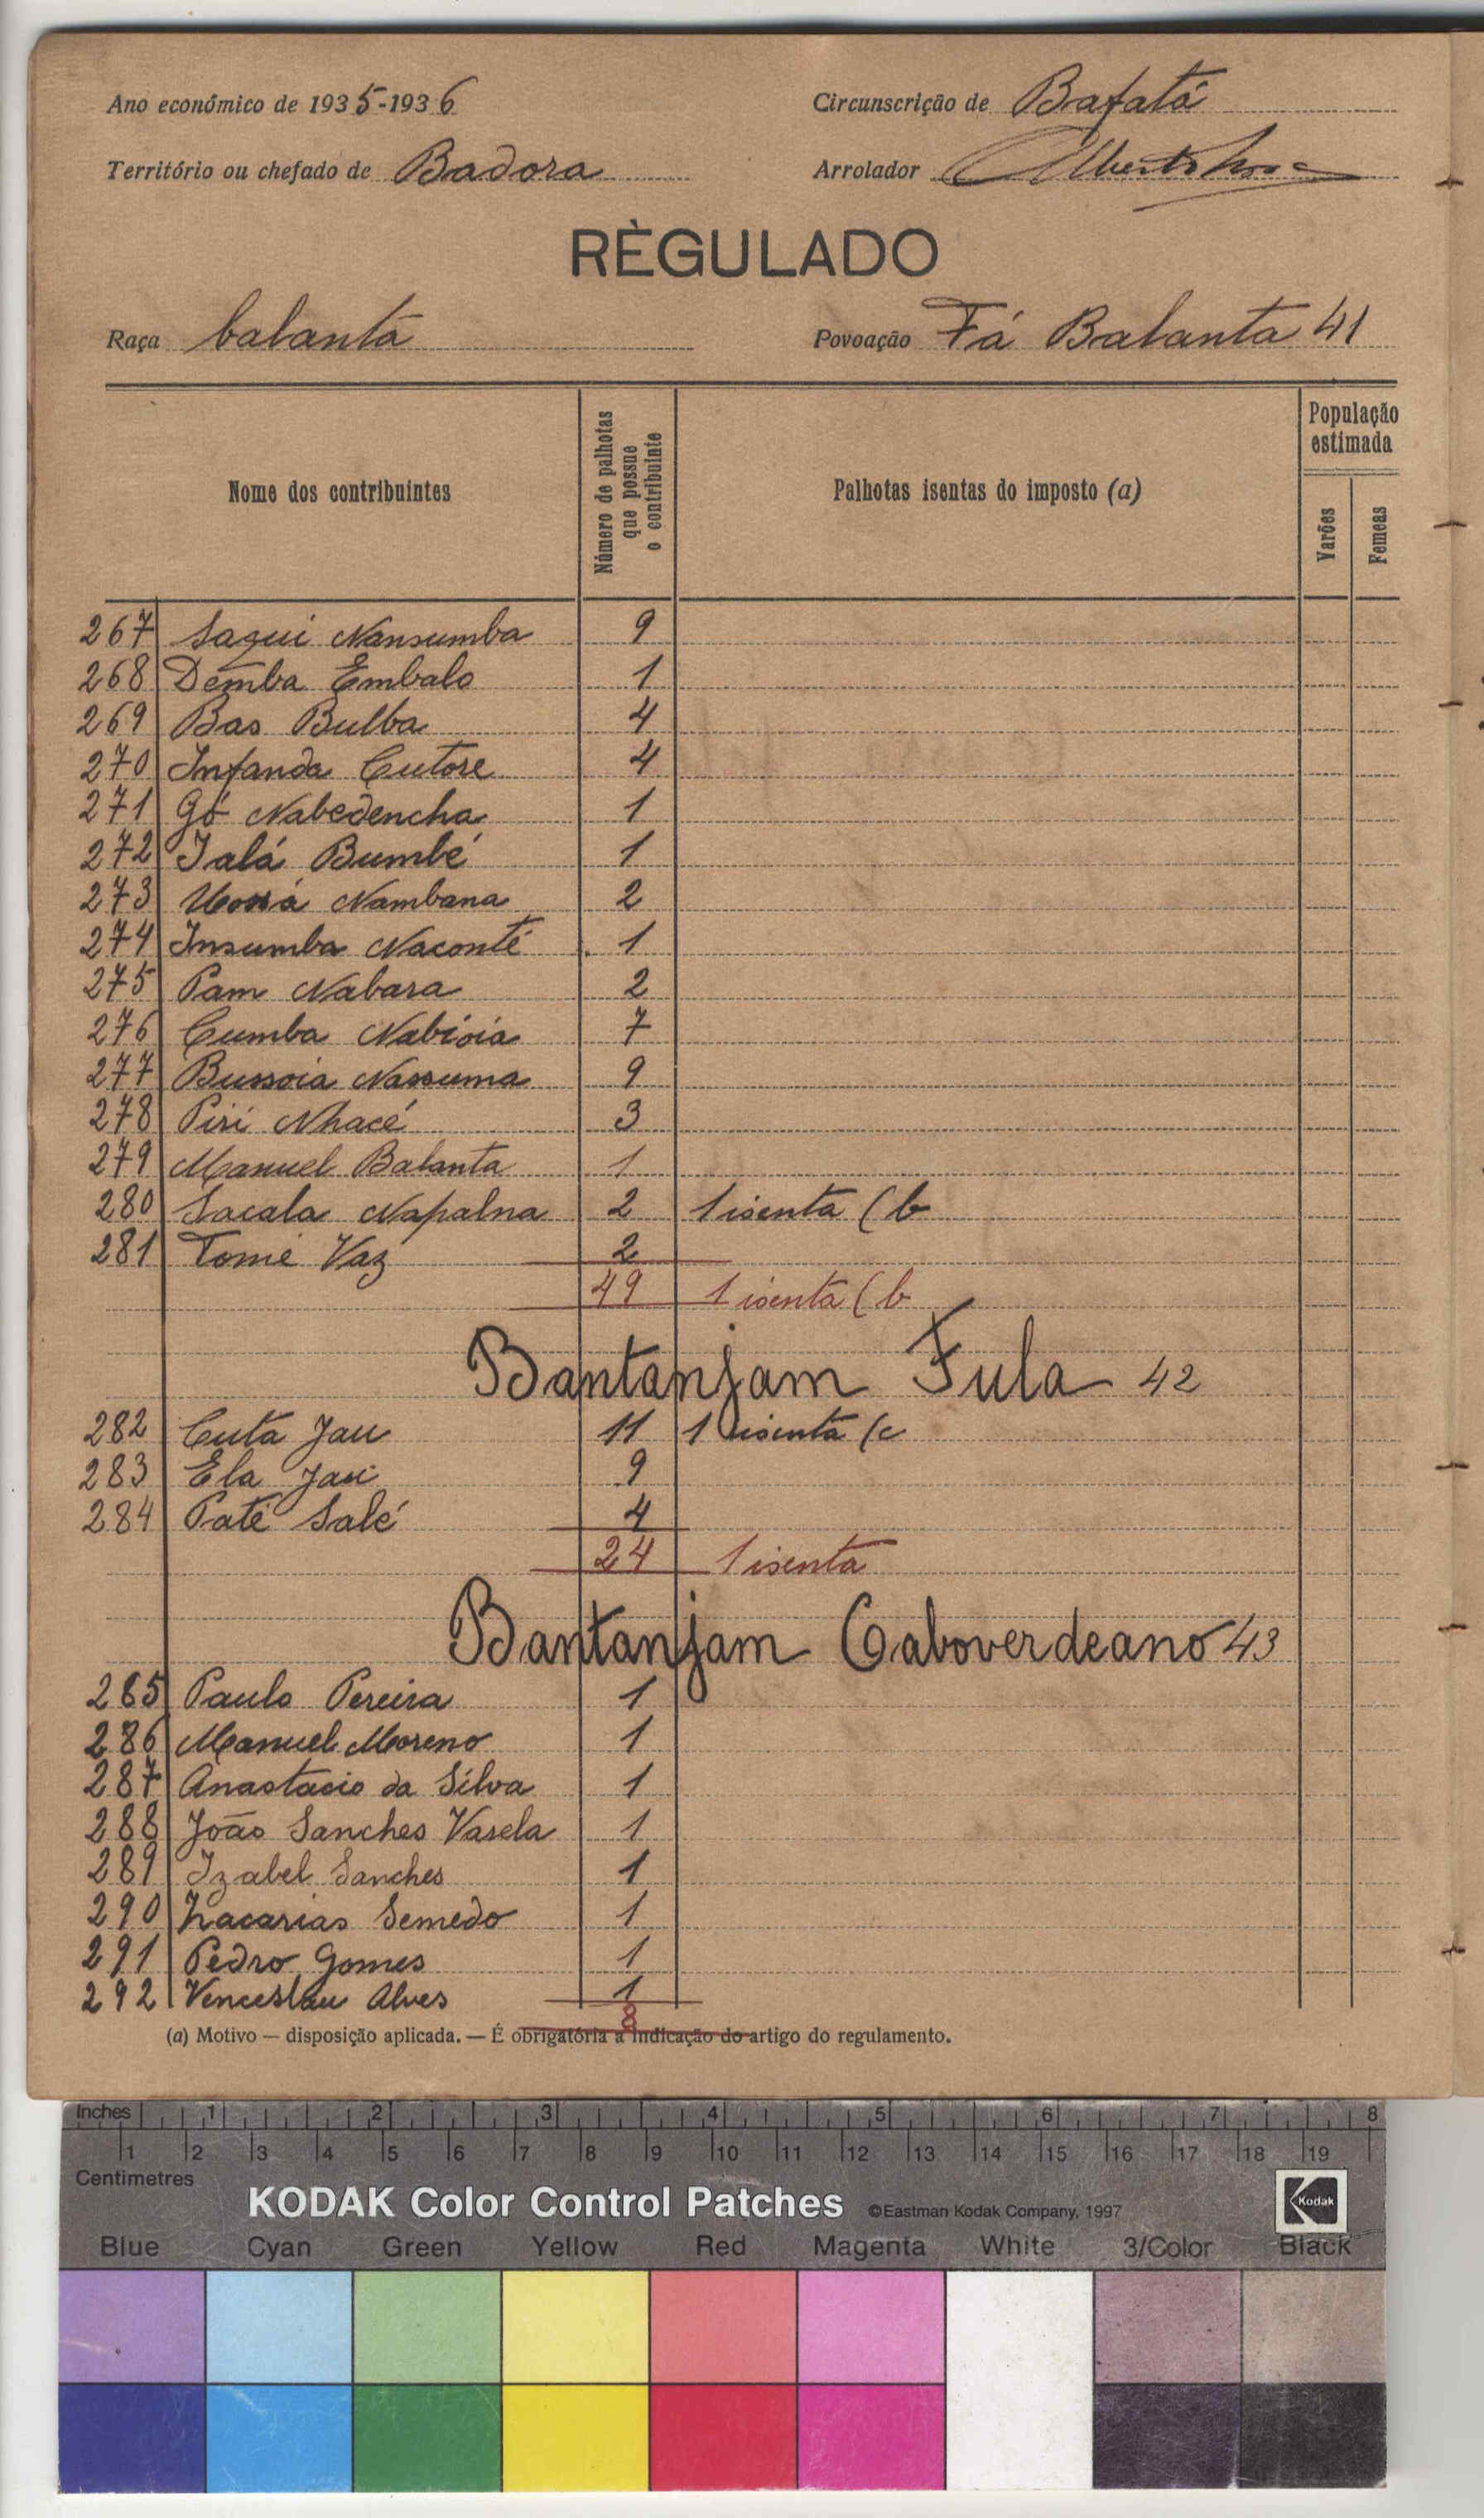 Ano económico de 1935-1936
Circunscrição de Bafatá
Território ou chefado de Badora
Arrolador Alberto
RÈGULADO
Raça balanta
Povoação Fá Balanta 41
Nome dos contribuintes
Número de palhotas que possue o contribuinte
Palhotas isentas do imposto (a)
População estimada
Varões
Femeas
267 Sagui Nansumba 9
268 Demba Embalo 1
269 Bas Bulba 4
270 Infanda Cutore 4
271 Gó Nabedencha 1
272 Ialá Bumbé 1
273 Nambana 2
274 Insumba Naconté 1
275 Pam Nabara 2
276 Cumba Nabioia 7
277 Bussoia Nassuma 9
278 Piri Nhacé 3
279 Manuel Balanta 1
280 Sacala Napalna 2 1 isenta (b
281 Tomé Vaz 2
49 1 isenta (b
Bantanjam Fula 42
282 Cuta Jau 11 1 isenta (c
283 Ela Jau 9
284 Paté Salé 4
24 1 isenta
Bantanjam Caboverdeano 43
285 Paulo Pereira 1
286 Manuel Moreno 1
287 Anastacio da Silva 1
288 João Sanches Varela 1
289 Izabel Sanches 1
290 Zacarias Semedo 1
291 Pedro Gomes 1
292 Venceslau Alves 1
8
(a) Motivo — disposição aplicada. — É obrigatória a indicação do artigo do regulamento.
Inches 1 2 3 4 5 6 7 8
1 2 3 4 5 6 7 8 9 10 11 12 13 14 15 16 17 18 19
Centimetres
KODAK Color Control Patches ©Eastman Kodak Company, 1997 Kodak
Blue Cyan Green Yellow Red Magenta White 3/Color Black